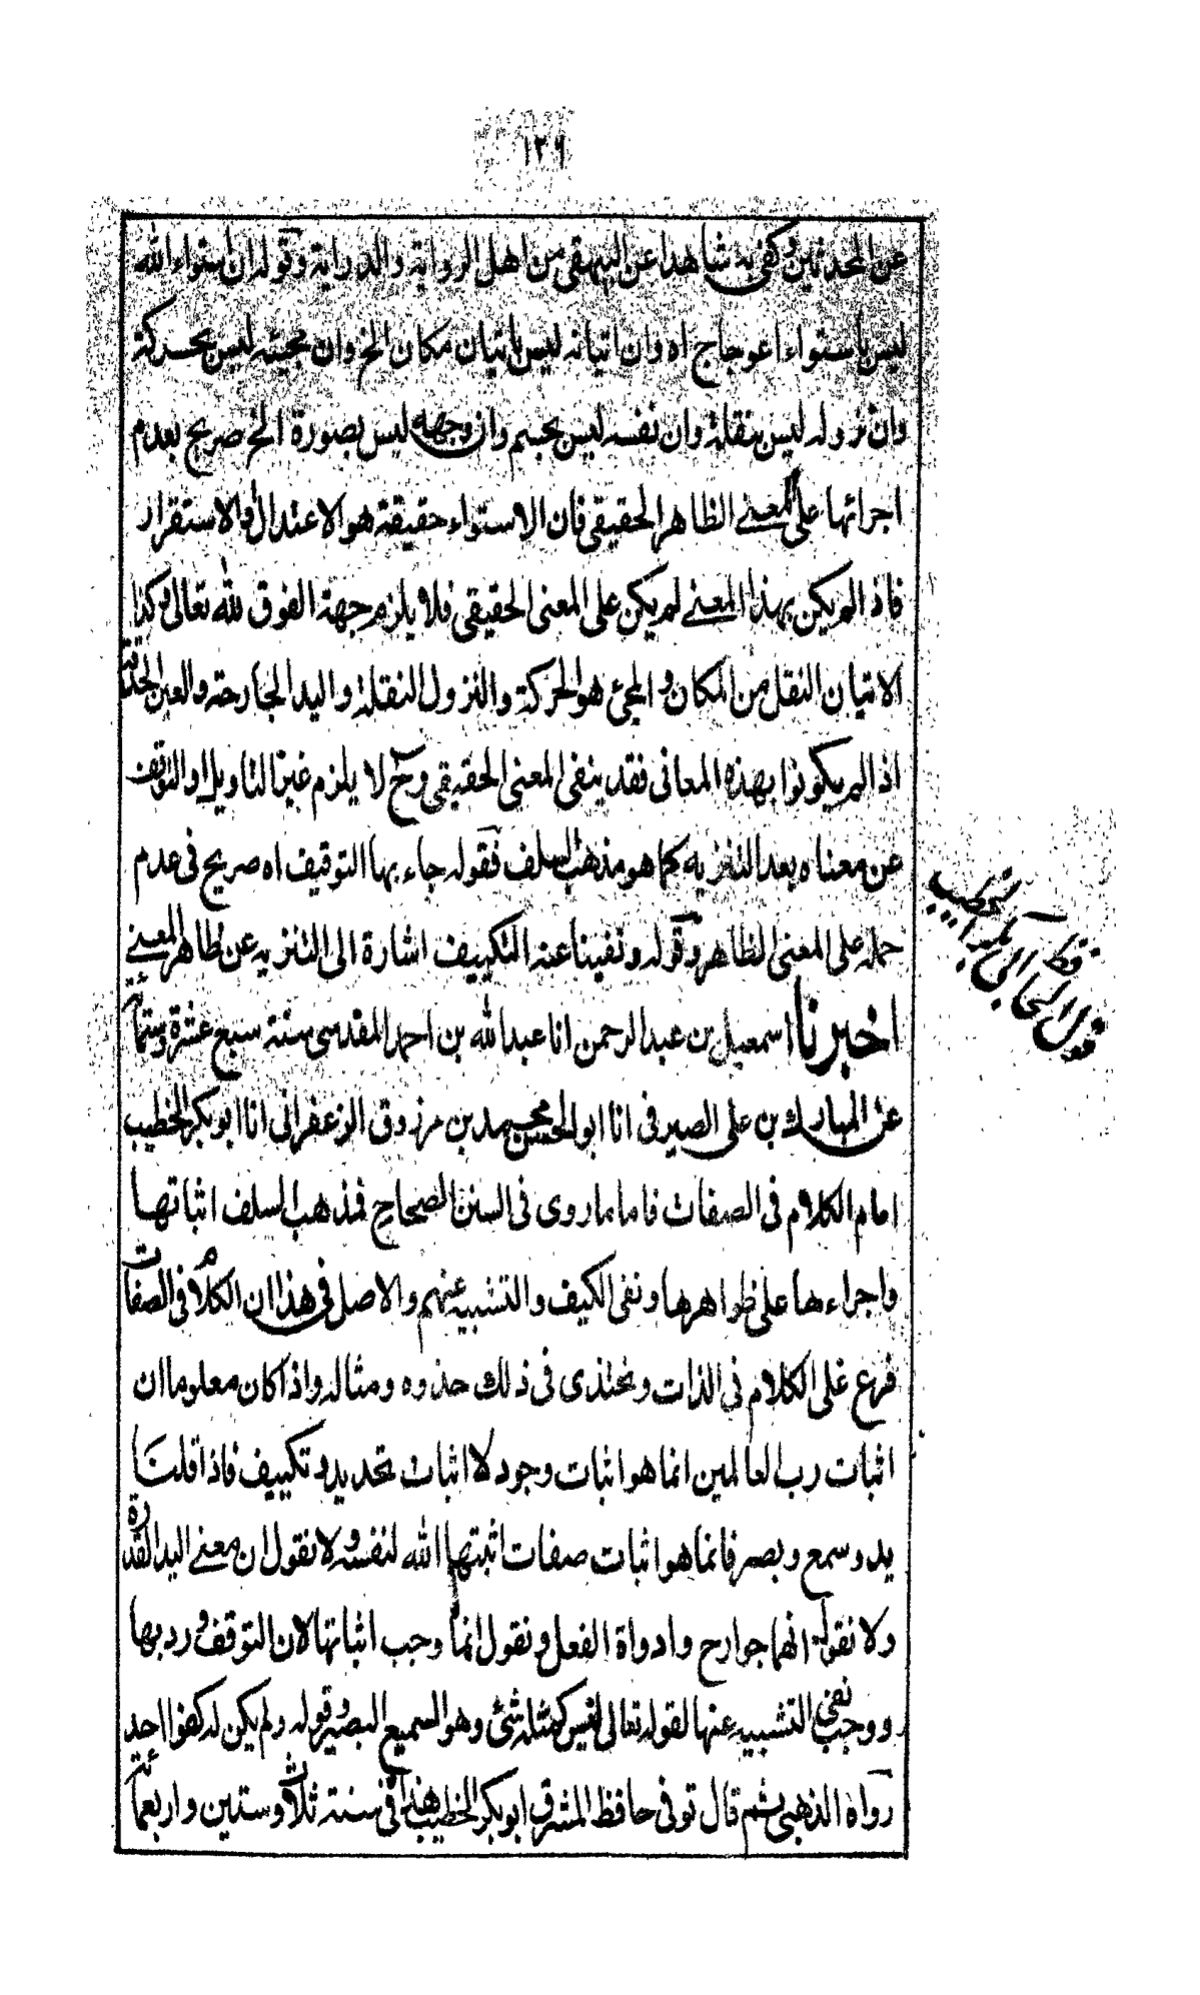 ١٢٩
عن المحدثين وكفى به شاهدا عن البيهقى من اهل الرواية والدراية وقوله ان استواء الله
ليس باستواء اعوجاج اه وان اتيانه ليس باتيان مكان الخ وان مجيئه ليس بحركة
وان نزوله ليس بنقلة وان نفسه ليس بجسم وان وجهه ليس بصورة الخ صريح بعدم
اجرائها على المعنے الظاهر الحقيقى فان الاستواء حقيقة هو الاعتدال والاستقرار
فاذا لم يكن بهذا المعنے لم يكن على المعنى الحقيقى فلا يلزم جهة الفوق لله تعالى وكذا
الاتيان النقل من المكان والمجئ هو الحركة والنزول النقلة واليد الجارحة والعين الحدقة
اذا لم يكونوا بهذه المعانى فقد ينفى المعنى الحقيقى وح لا يلزم غير التاويل او التوقف
عن معناه بعد التنزيه كما هو مذهب السلف فقوله جاء بها التوقيف اه صريح فى عدم
حمله على المعنى الظاهر وقوله ونفينا عنه التكييف اشارة الى التنزيه عن ظاهر المعنے
اخبرنا اسمعيل بن عبد الرحمن انا عبد الله بن احمد المقدسى سنة سبع عشرة وستمائة
عن المبارك بن على الصيرفى انا ابو الحسن محمد بن مرزوق الزعفرانى انا ابو بكر الخطيب
امام الكلام فى الصفات فاما ما روى فى السنن الصحاح فمذهب السلف اثباتها
واجراءها على ظواهرها ونفى الكيف والتشبيه عنهم والاصل فى هذا ان الكلام فى الصفات
فرع على الكلام فى الذات ونحتذى فى ذلك حذوه ومثاله واذا كان معلوما ان
اثبات رب العالمين انما هو اثبات وجود لا اثبات تحديد وتكييف فاذا قلنا
يد وسمع وبصر فانما هو اثبات صفات اثبتها الله لنفسه ولا نقول ان معنے اليد القدرة
ولا نقول انهما جوارح وادواة الفعل ونقول انما وجب اثباتها لان التوقف ورد بها
ووجب نفى التشبيه عنها لقوله تعالى ليس كمثله شئ وهو السميع البصير وقوله ولم يكن له كفوا احد
رواه الذهبى ثم قال توفى حافظ المشرق ابو بكر الخطيب هذا فى سنة ثلاث وستين واربعمائة
قول الحافظ ابى بكر الخطيب